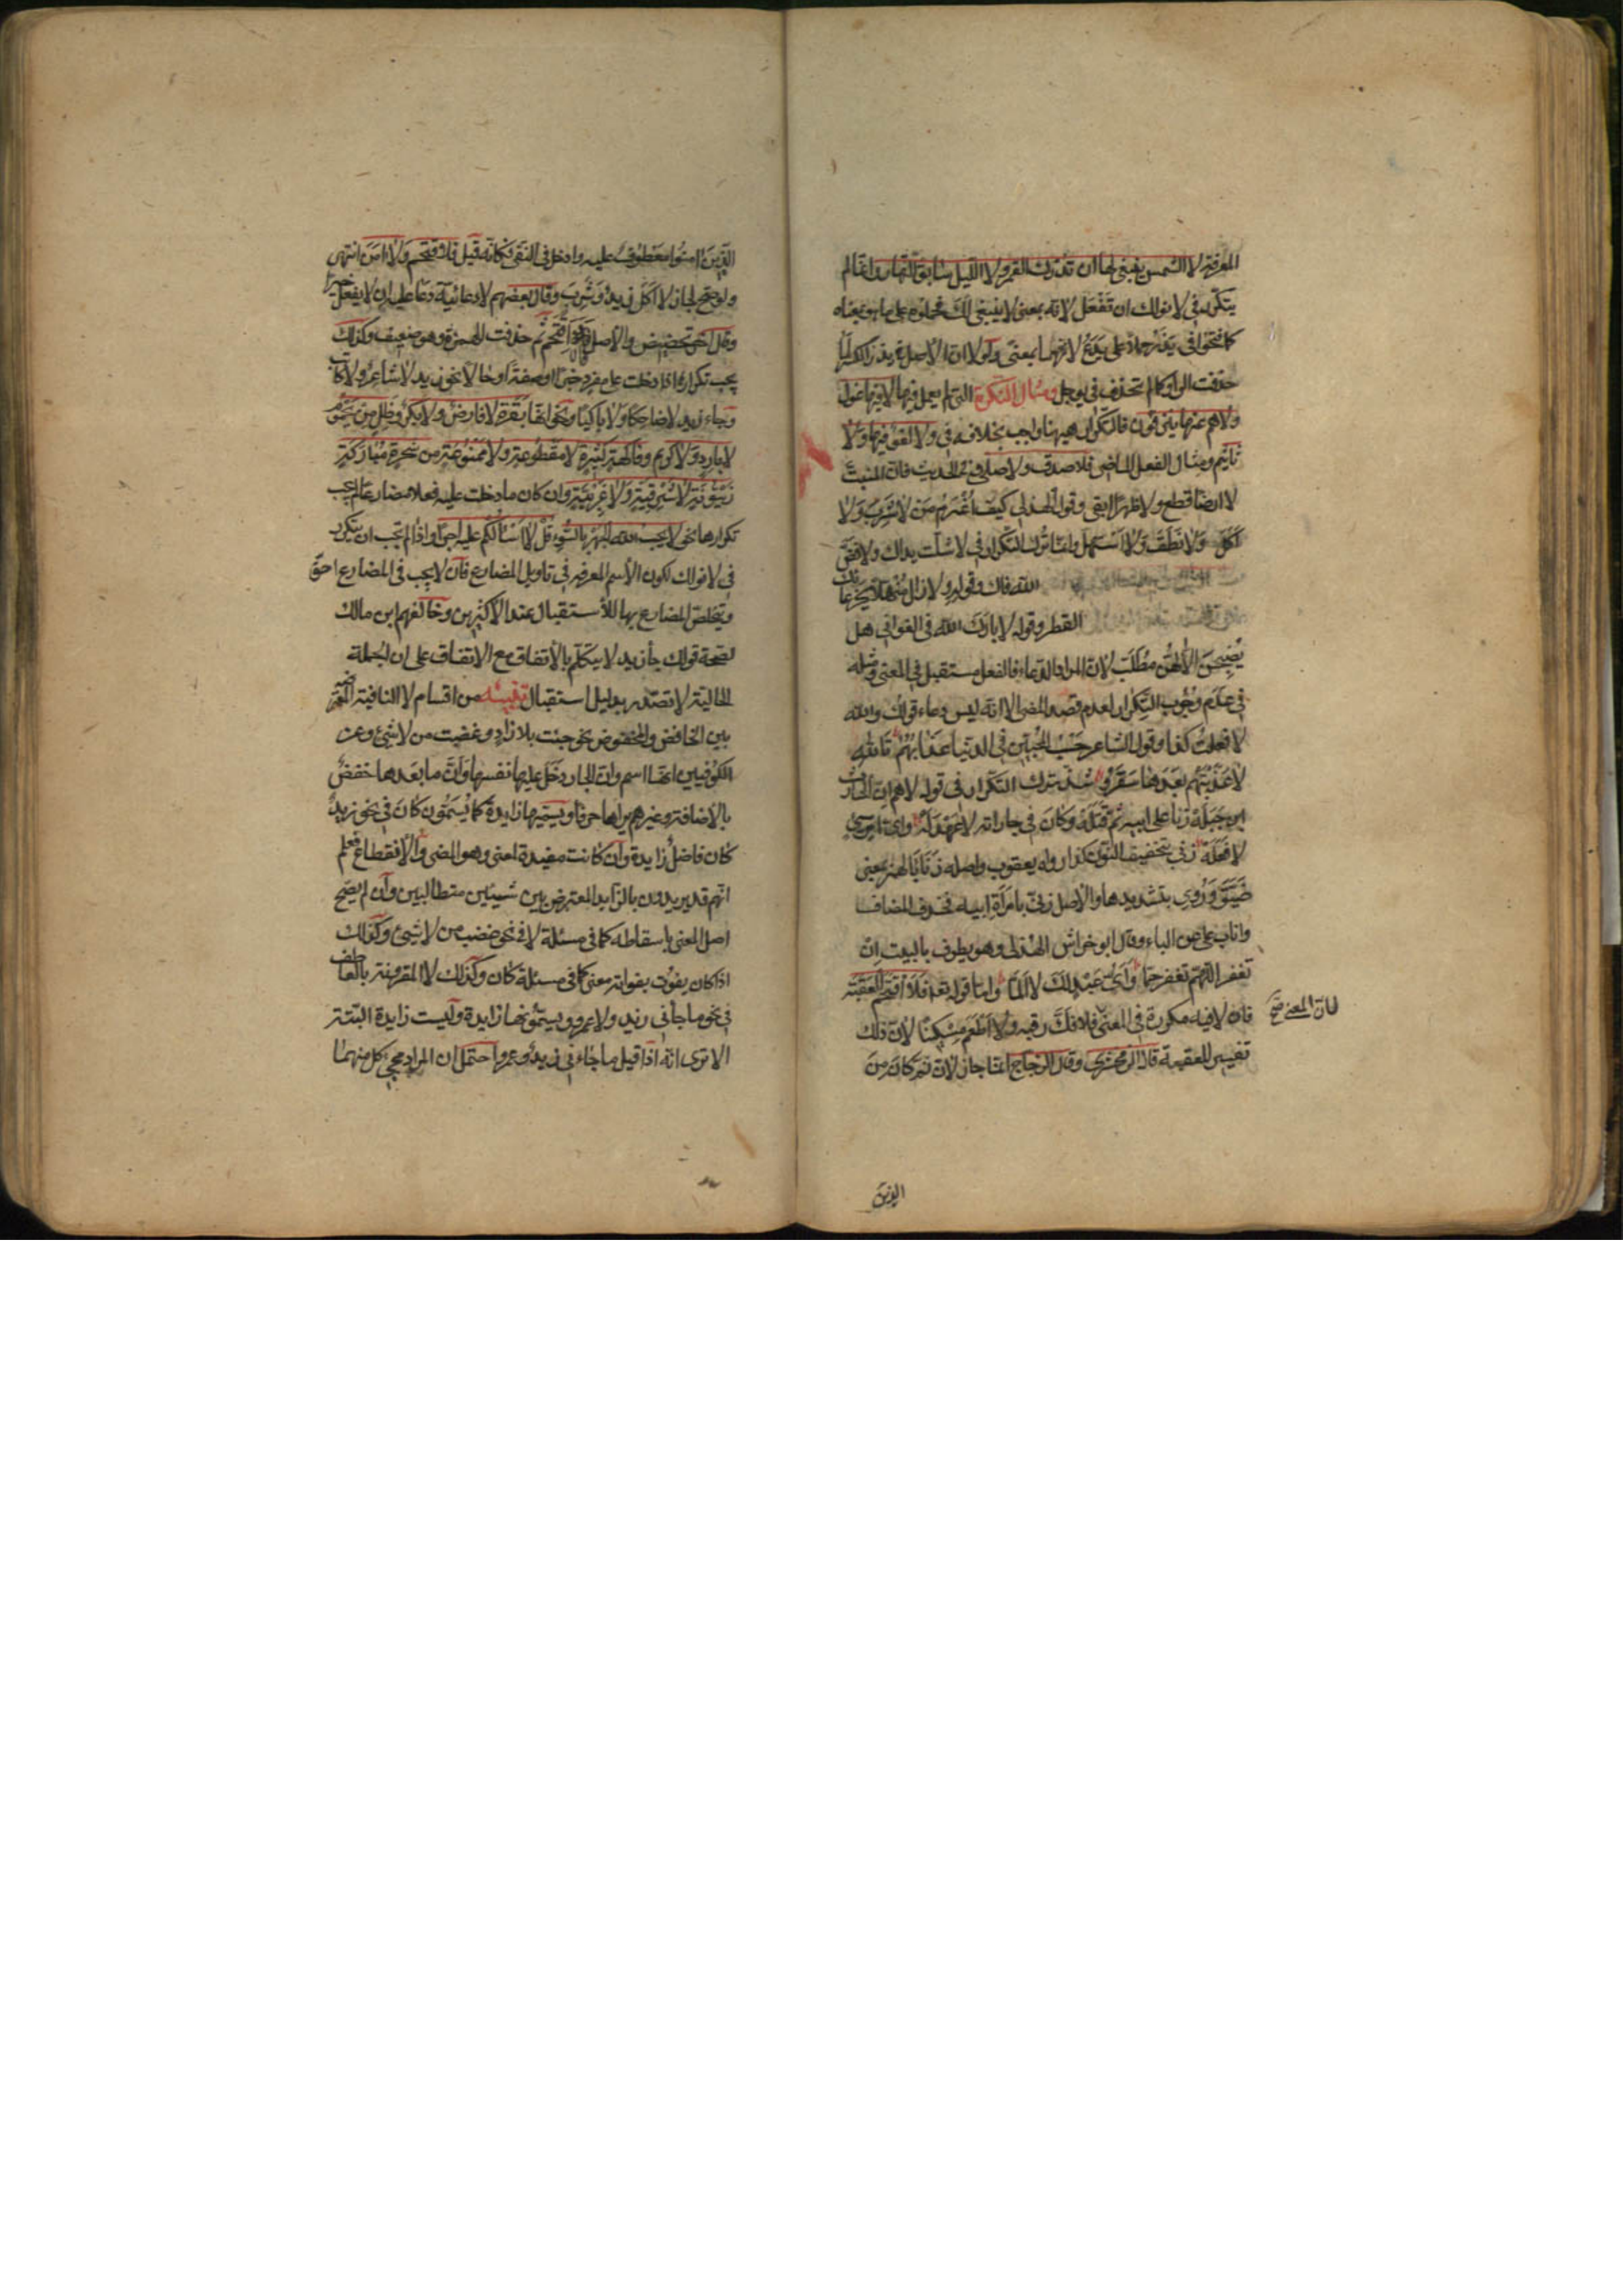 المعرفة لا الشمس ينبغي لها ان تدرك القمر ولا الليل سابق النهار وانما لم
يتكرر في لا نولك ان تفعل لانه بمعنى لا ينبغي لك فحملوه على ما هو بمعناه
كما فتحوا في يذر حملا على يدع لانهما بمعنى ولولا ان الاصل في يذر الكسر لما
حذفت الواو كما لم تحذف في يوجل ومثال النكرة التي لم يعمل فيها لا فيها غول
ولا هم عنها ينزفون فالتكرار هيهنا واجب بخلافه في ولا لغو فيها ولا
تاثيم ومثال الفعل الماضي فلا صدق ولا صلى وفي الحديث فان المنبت
لا ارضا قطع ولا ظهرا ابقى وقول الهذلي كيف اغرم من لا شرب ولا
اكل ولا نطق ولا استهل وانما ترك التكرار في لا شلت يداك ولا فض
الله فاك وقوله ولا زال منهلا بجرعائك
القطر وقوله لا بارك الله في الغواني هل
يصبحن الا لهن مطلب لان المراد الدعاء فالفعل مستقبل في المعنى ومثله
في عدم وجوب التكرار لعدم قصد المضي الا انه ليس دعاء قولك والله
لا فعلت كذا وقول الشاعر حسب المحبين في الدنيا عذابهم تالله
لا عذبتهم بعدها سقر وشذ ترك التكرار في قوله لاهم ان الحارث
ابن جبلة زنا على ابيه ثم قتله وكان في جاراته لا عهد له واي امر سيئ
لا فعله زنى بتخفيف النون كذا رواه يعقوب واصله زنا بالهمز بمعنى
ضيق وروي بتشديدها والاصل زنى بامراة ابيه فحذف المضاف
واناب على عن الباء وقال ابو خراش الهذلي وهو يطوف بالبيت ان
تغفر اللهم تغفر جما واي عبد لك لا الما واما قوله تعا فلا اقتحم العقبة
فان لا فيه مكررة في المعنى فلا فك رقبة ولا اطعم مسكينا لان ذلك
لان المعنى صح
تفسير للعقبة قاله الزمخشري وقال الزجاج انما جاز لان ثم كان من
الذين
الذين امنوا معطوف عليه وداخل في النفي فكانه قيل فلا اقتحم ولا امن انتهى
ولو صح لجاز لا اكل زيد وشرب وقال بعضهم لا دعائية دعا عليه ان لا يفعل خيرا
وقال اخر تحضيض والاصل فالا اقتحم ثم حذفت الهمزة وهو ضعيف وكذلك
يجب تكرارها اذا دخلت على مفرد خبرا او صفة او حالا نحو زيد لا شاعر ولا كاتب
وجاء زيد لا ضاحكا ولا باكيا ونحو انها بقرة لا فارض ولا بكر وظل من يحموم
لا بارد ولا كريم وفاكهة كثيرة لا مقطوعة ولا ممنوعة من شجرة مباركة
زيتونة لا شرقية ولا غربية وان كان ما دخلت عليه فعلا مضارعا لم يجب
تكرارها نحو لا يحب الله الجهر بالسوء قل لا اسئالكم عليه اجرا واذا لم يجب ان يتكرر
في لا نولك لكون الاسم المعرفة في تاويل المضارع فان لا يجب في المضارع احق
ويتخلص المضارع بها للاستقبال عند الاكثرين وخالفهم ابن مالك
لصحة قولك جاء زيد لا يتكلم بالاتفاق مع الاتفاق على ان الجملة
الحالية لا تصدر بدليل استقبال تنبيه من اقسام لا النافية المعترضة
بين الخافض والمخفوض نحو جئت بلا زاد وغضبت من لا شيئ وعن
الكوفيين انها اسم وان الجار دخل عليها نفسها وان ما بعدها خفض
بالاضافة وغيرهم يراها حرفا ويسميها زايدة كما يسمون كان في نحو زيد
كان فاضل زايدة وان كانت مفيدة لمعنى وهو المضي والانقطاع فعلم
انهم قد يريدون بالزايد المعترض بين شيئين متطالبين وان لم يصح
اصل المعنى باسقاطه كما في مسئلة لا في نحو غضبت من لا شيئ وكذلك
اذا كان يفوت بفواته معنى كما في مسئلة كان وكذلك لا المقرونة بالعاطف
في نحو ما جاءني زيد ولا عمرو ويسمونها زايدة وليست زايدة البتة
الا ترى انه اذا قيل ما جاءني زيد وعمرو احتمل ان المراد مجيء كل منهما